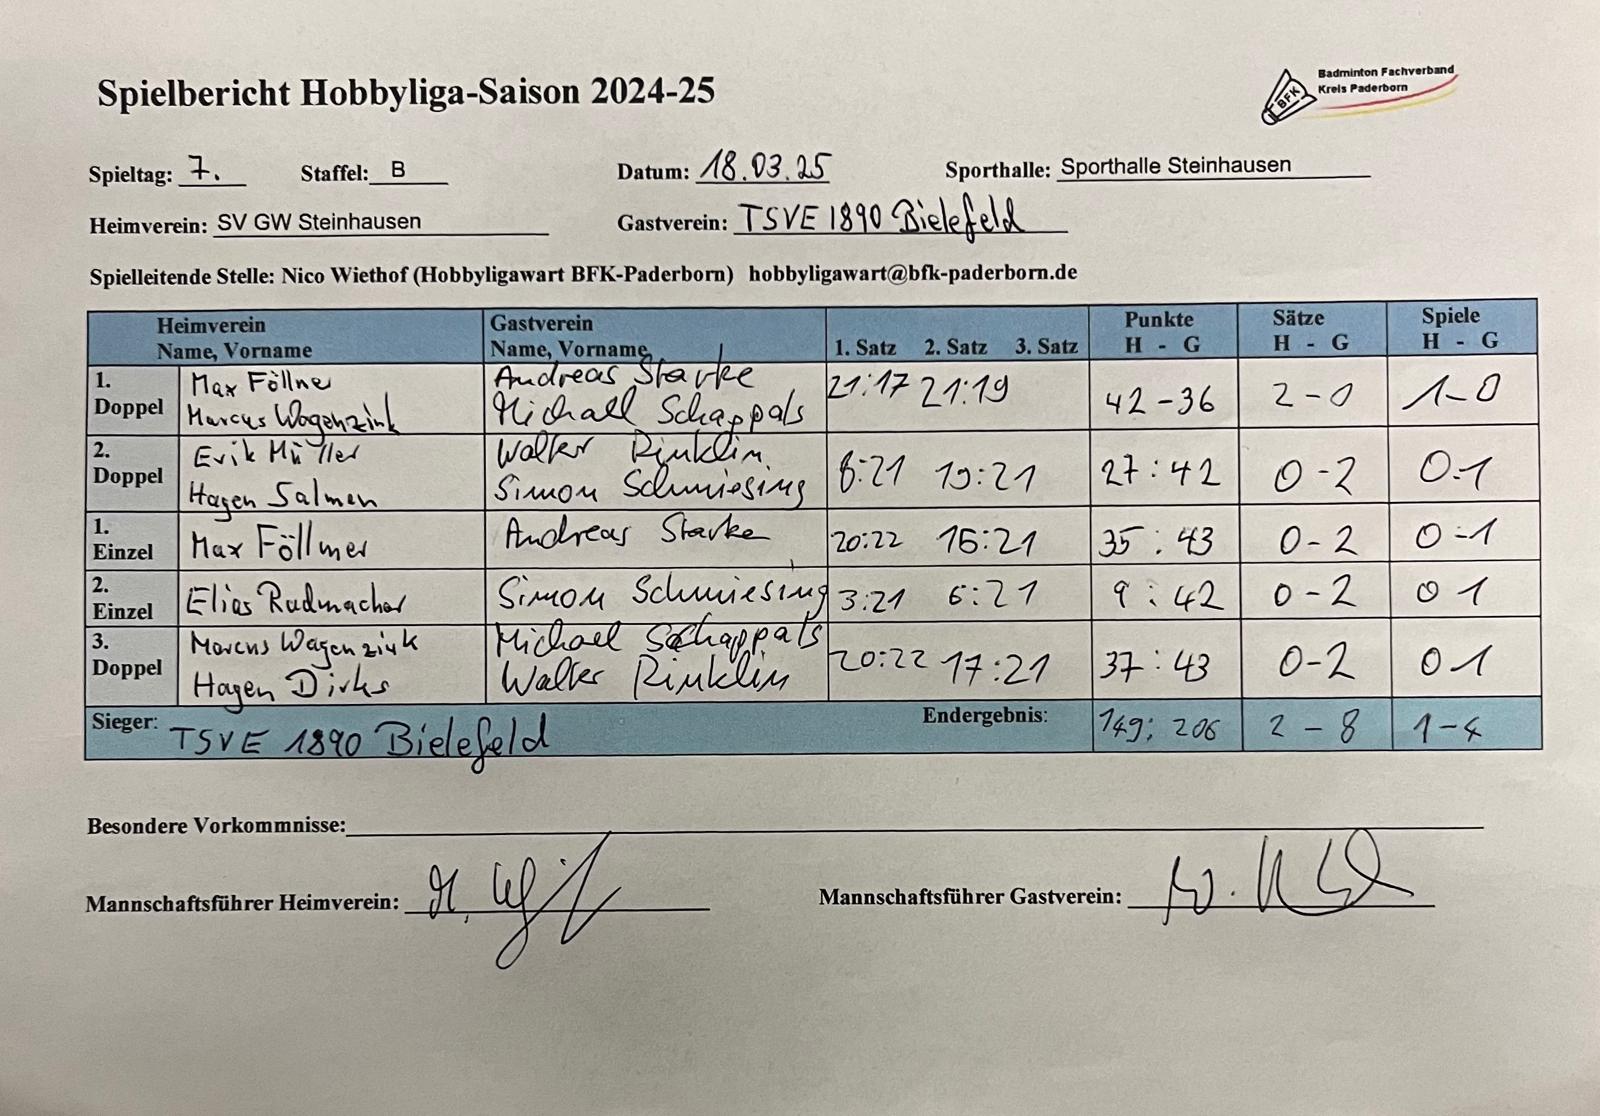 Spielbericht Hobbyliga-Saison 2024-25
BFK
Badminton Fachverband
Kreis Paderborn
Spieltag: 7. Staffel: B Datum: 18.03.25 Sporthalle: Sporthalle Steinhausen
Heimverein: SV GW Steinhausen Gastverein: TSVE 1890 Bielefeld
Spielleitende Stelle: Nico Wiethof (Hobbyligawart BFK-Paderborn) hobbyligawart@bfk-paderborn.de
Heimverein Gastverein Punkte Sätze Spiele
Name, Vorname Name, Vorname 1. Satz 2. Satz 3. Satz H - G H - G H - G
1. Max Föllner Andreas Starke 21:17 21:19 42-36 2-0 1-0
Doppel Marcus Wagenzink Michael Schappals
2. Erik Müller Walter Rinklin 8:21 19:21 27:42 0-2 0-1
Doppel Hagen Salmen Simon Schmiesing
1. Max Föllmer Andreas Starke 20:22 15:21 35:43 0-2 0-1
Einzel
2. Elias Radmacher Simon Schmiesing 3:21 6:21 9:42 0-2 0 1
Einzel
3. Marcus Wagenzink Michael Schappals 20:22 17:21 37:43 0-2 0 1
Doppel Hagen Dirks Walter Rinklin
Sieger: TSVE 1890 Bielefeld Endergebnis: 149: 206 2-8 1-4
Besondere Vorkommnisse:
Mannschaftsführer Heimverein: Mannschaftsführer Gastverein: